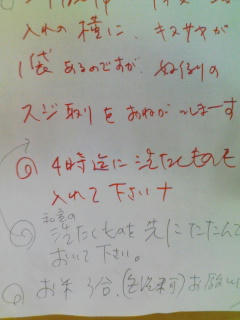 入れの横に、キヌサヤが
1袋あるのですが、
スジ取りをおねがいしまーす
4時迄に洗たくものも
入れて下さい
和室の
洗たくものを先にたたんで
おいて下さい。
お米3合、お願い